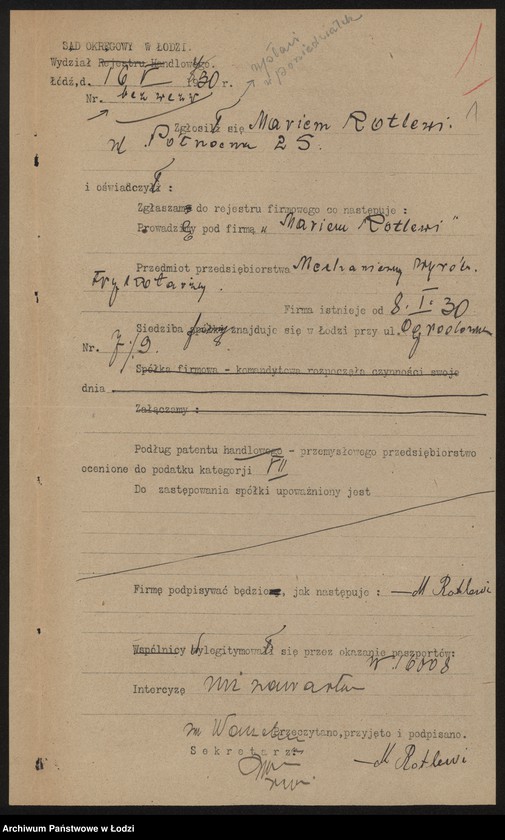 SĄD OKRĘGOWY W ŁODZI.
Wydział Rejestru Handlowego.
Łódź, d. 16 V 1930 r.
Nr. bez wezw
1
Zgłosił się Mariem Rotlewi.
Północna 25.
i oświadczył :
Zgłaszam do rejestru firmowego co następuje :
Prowadzę pod firmą „Mariem Rotlewi"
Przedmiot przedsiębiorstwa Mechaniczny wyrób.
trykotarzy.
Firma istnieje od 8. I. 30
Siedziba spółki znajduje się w Łodzi przy ul. Ogrodowa
Nr. 7/9.
Spółka firmowa - komandytowa rozpoczęła czynności swoje
dnia
Załączamy :
Podług patentu handlowego - przemysłowego przedsiębiorstwo
ocenione do podatku kategorji VII
Do zastępowania spółki upoważniony jest
Firmę podpisywać będzie, jak następuje : — M Rotlewi
Wspólnicy wylegitymował się przez okazanie paszportów:
N. 16008
Intercyzę nie zawarłam
Przeczytano, przyjęto i podpisano.
Sekretarz
— M Rotlewi
Archiwum Państwowe w Łodzi